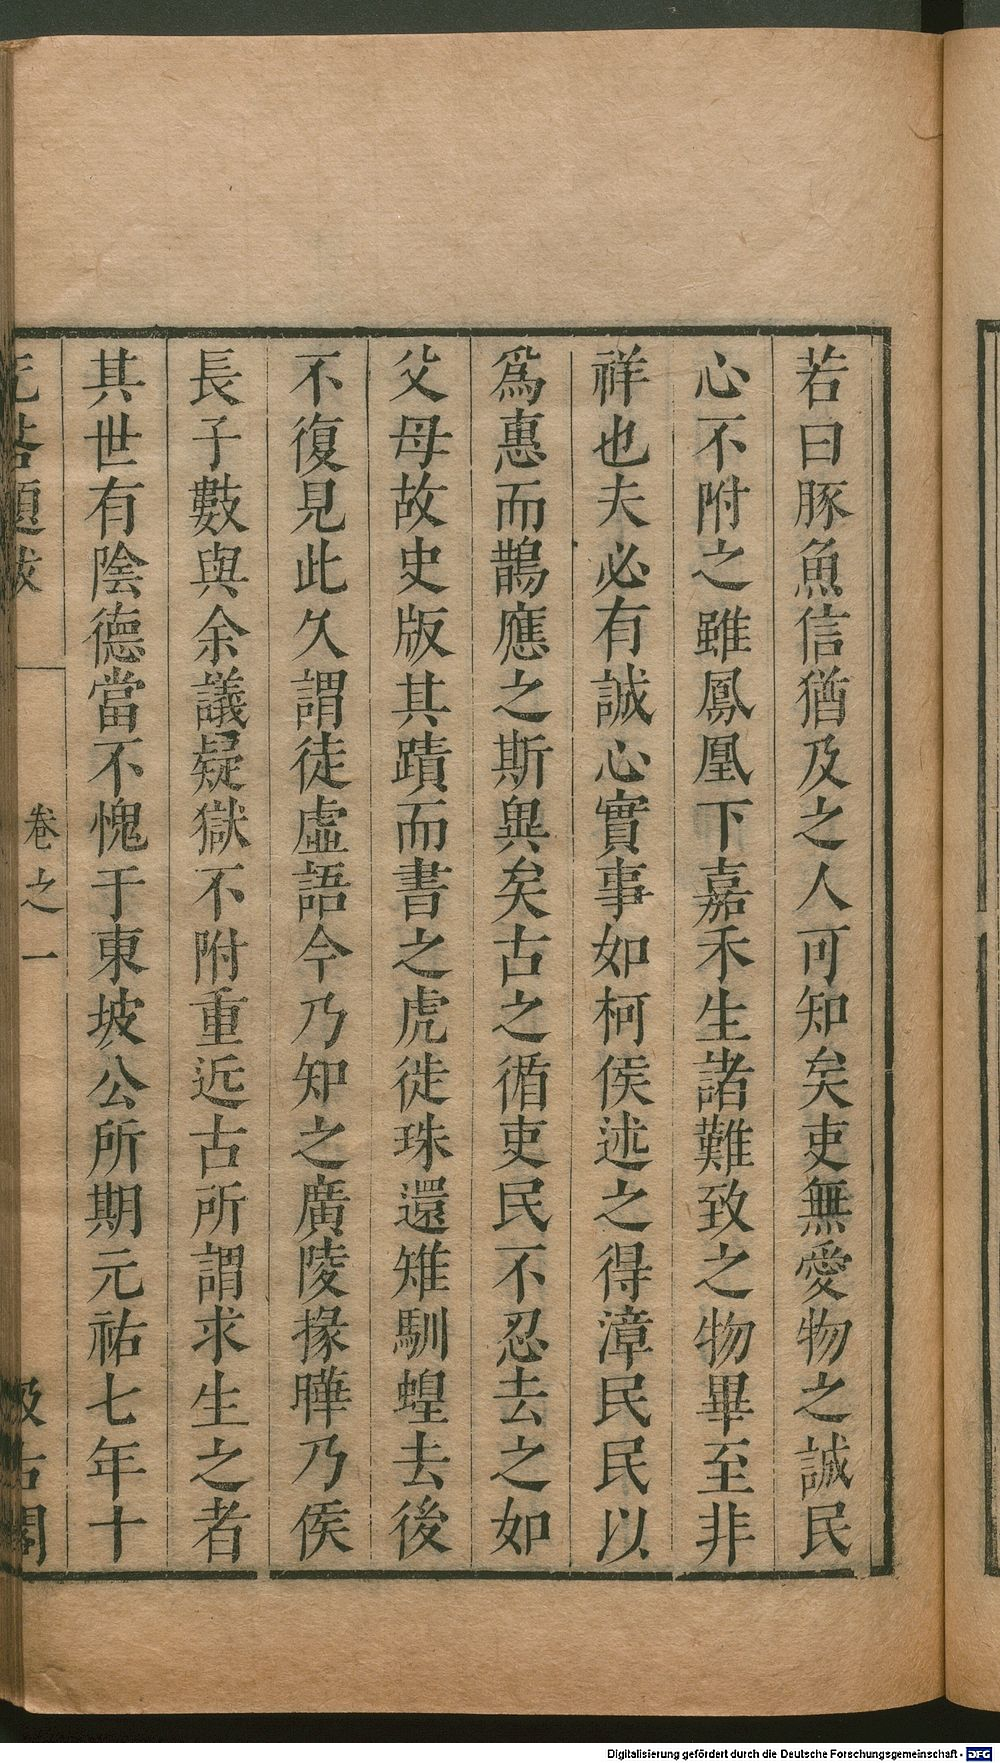 若曰豚魚信猶及之人可知矣吏無愛物之誠民
心不附之雖鳳凰下嘉禾生諸難致之物畢至非
祥也夫必有誠心實事如柯侯述之得漳民民以
爲惠而鵲應之斯異矣古之循吏民不忍去之如
父母故史版其蹟而書之虎徙珠還雉馴蝗去後
不復見此久謂徒虛語今乃知之廣陵掾曄乃侯
長子數與余議疑獄不附重近古所謂求生之者
其世有陰德當不愧于東坡公所期元祐七年十
无咎題跋 卷之一 汲古閣
Digitalisierung gefördert durch die Deutsche Forschungsgemeinschaft - DFG